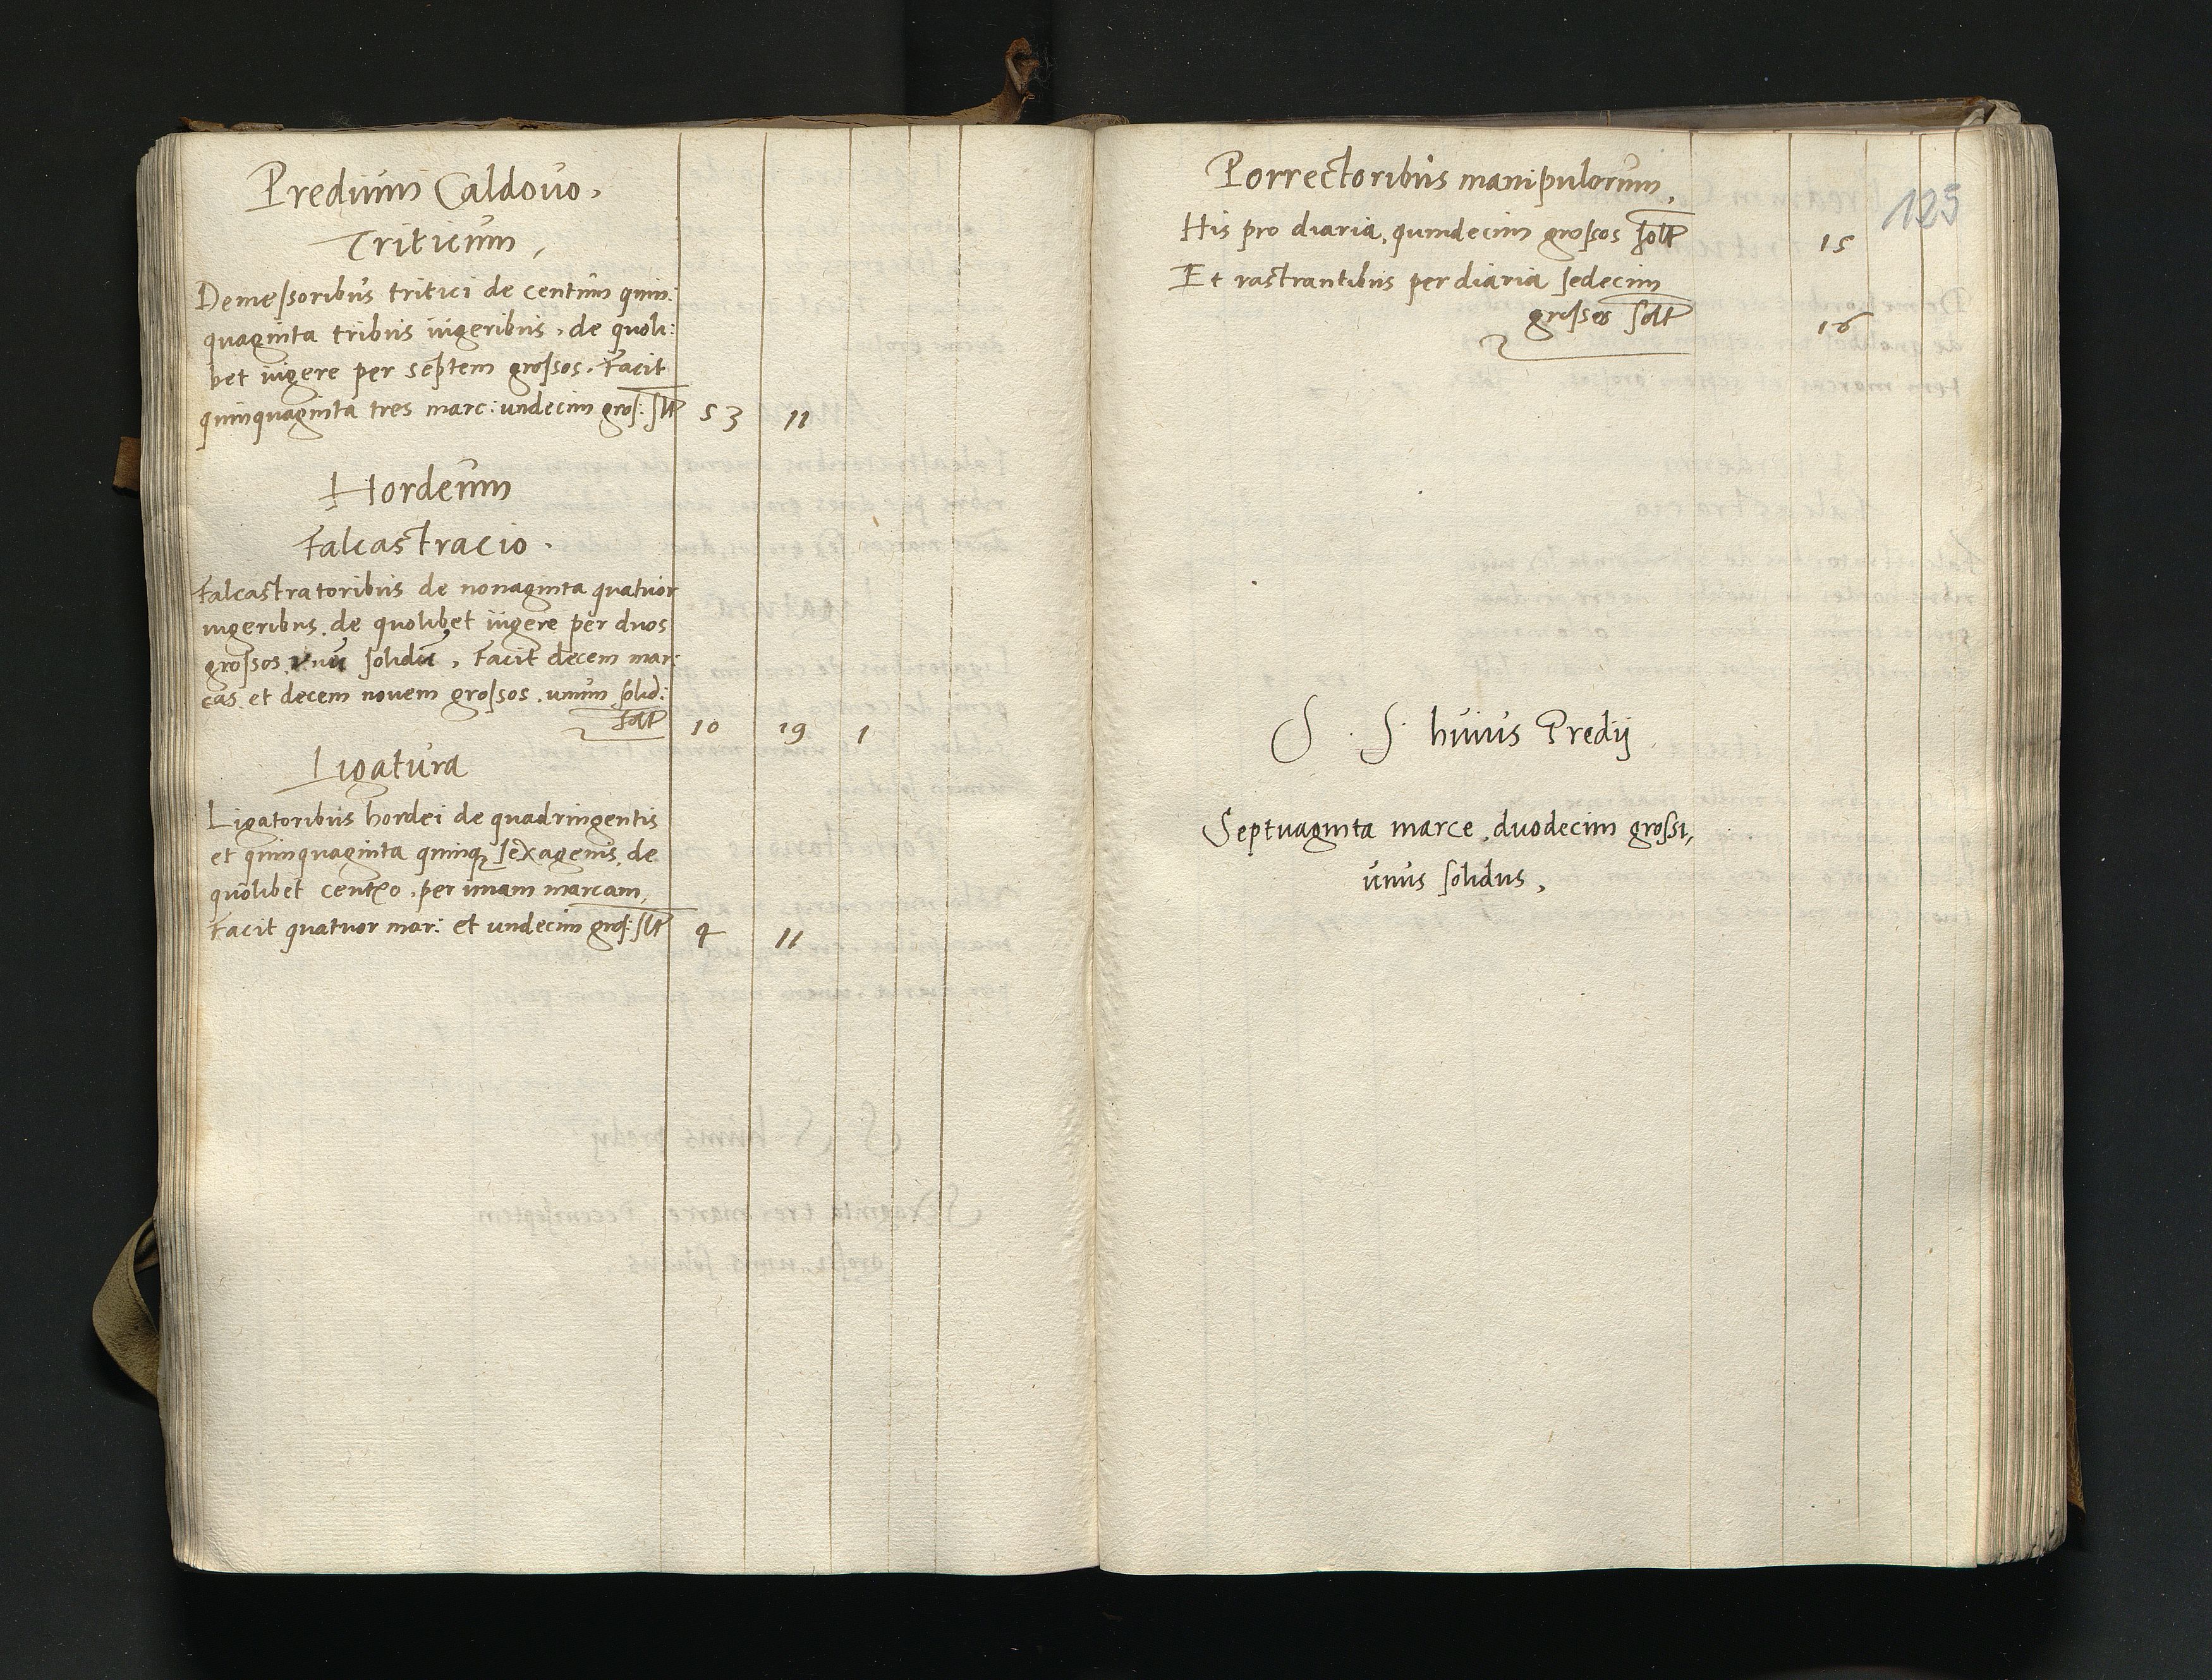 Predium Caldovo.
Triticum,
Demessoribus tritici de centum quin:
quaginta tribus iugeribus, de quoli:
bet iugere per septem grossos. Facit
quinquaginta tres marc: undecim gros: slt 53 11
Hordeum
Falcastracio.
Falcastratoribus de nonaginta quatuor
iugeribus, de quolibet iugere per duos
grossos unu solidu, Facit decem mar:
cas et decem novem grossos, unum solid:
solt 10 19 1
Ligatura
Ligatoribus hordei de quadringentis
et quinquaginta quinq sexagenis, de
quolibet cent°, per unam marcam,
Facit quatuor mar: et undecim gros: slt 4 11
123
Porrectoribus manipulorum,
His pro diaria, quindecim grossos solt 15
Et rastrantibus per diaria sedecim
grosses solt 16
S. S. huius Predij
Septuaginta marce, duodecim grossi,
unus solidus,